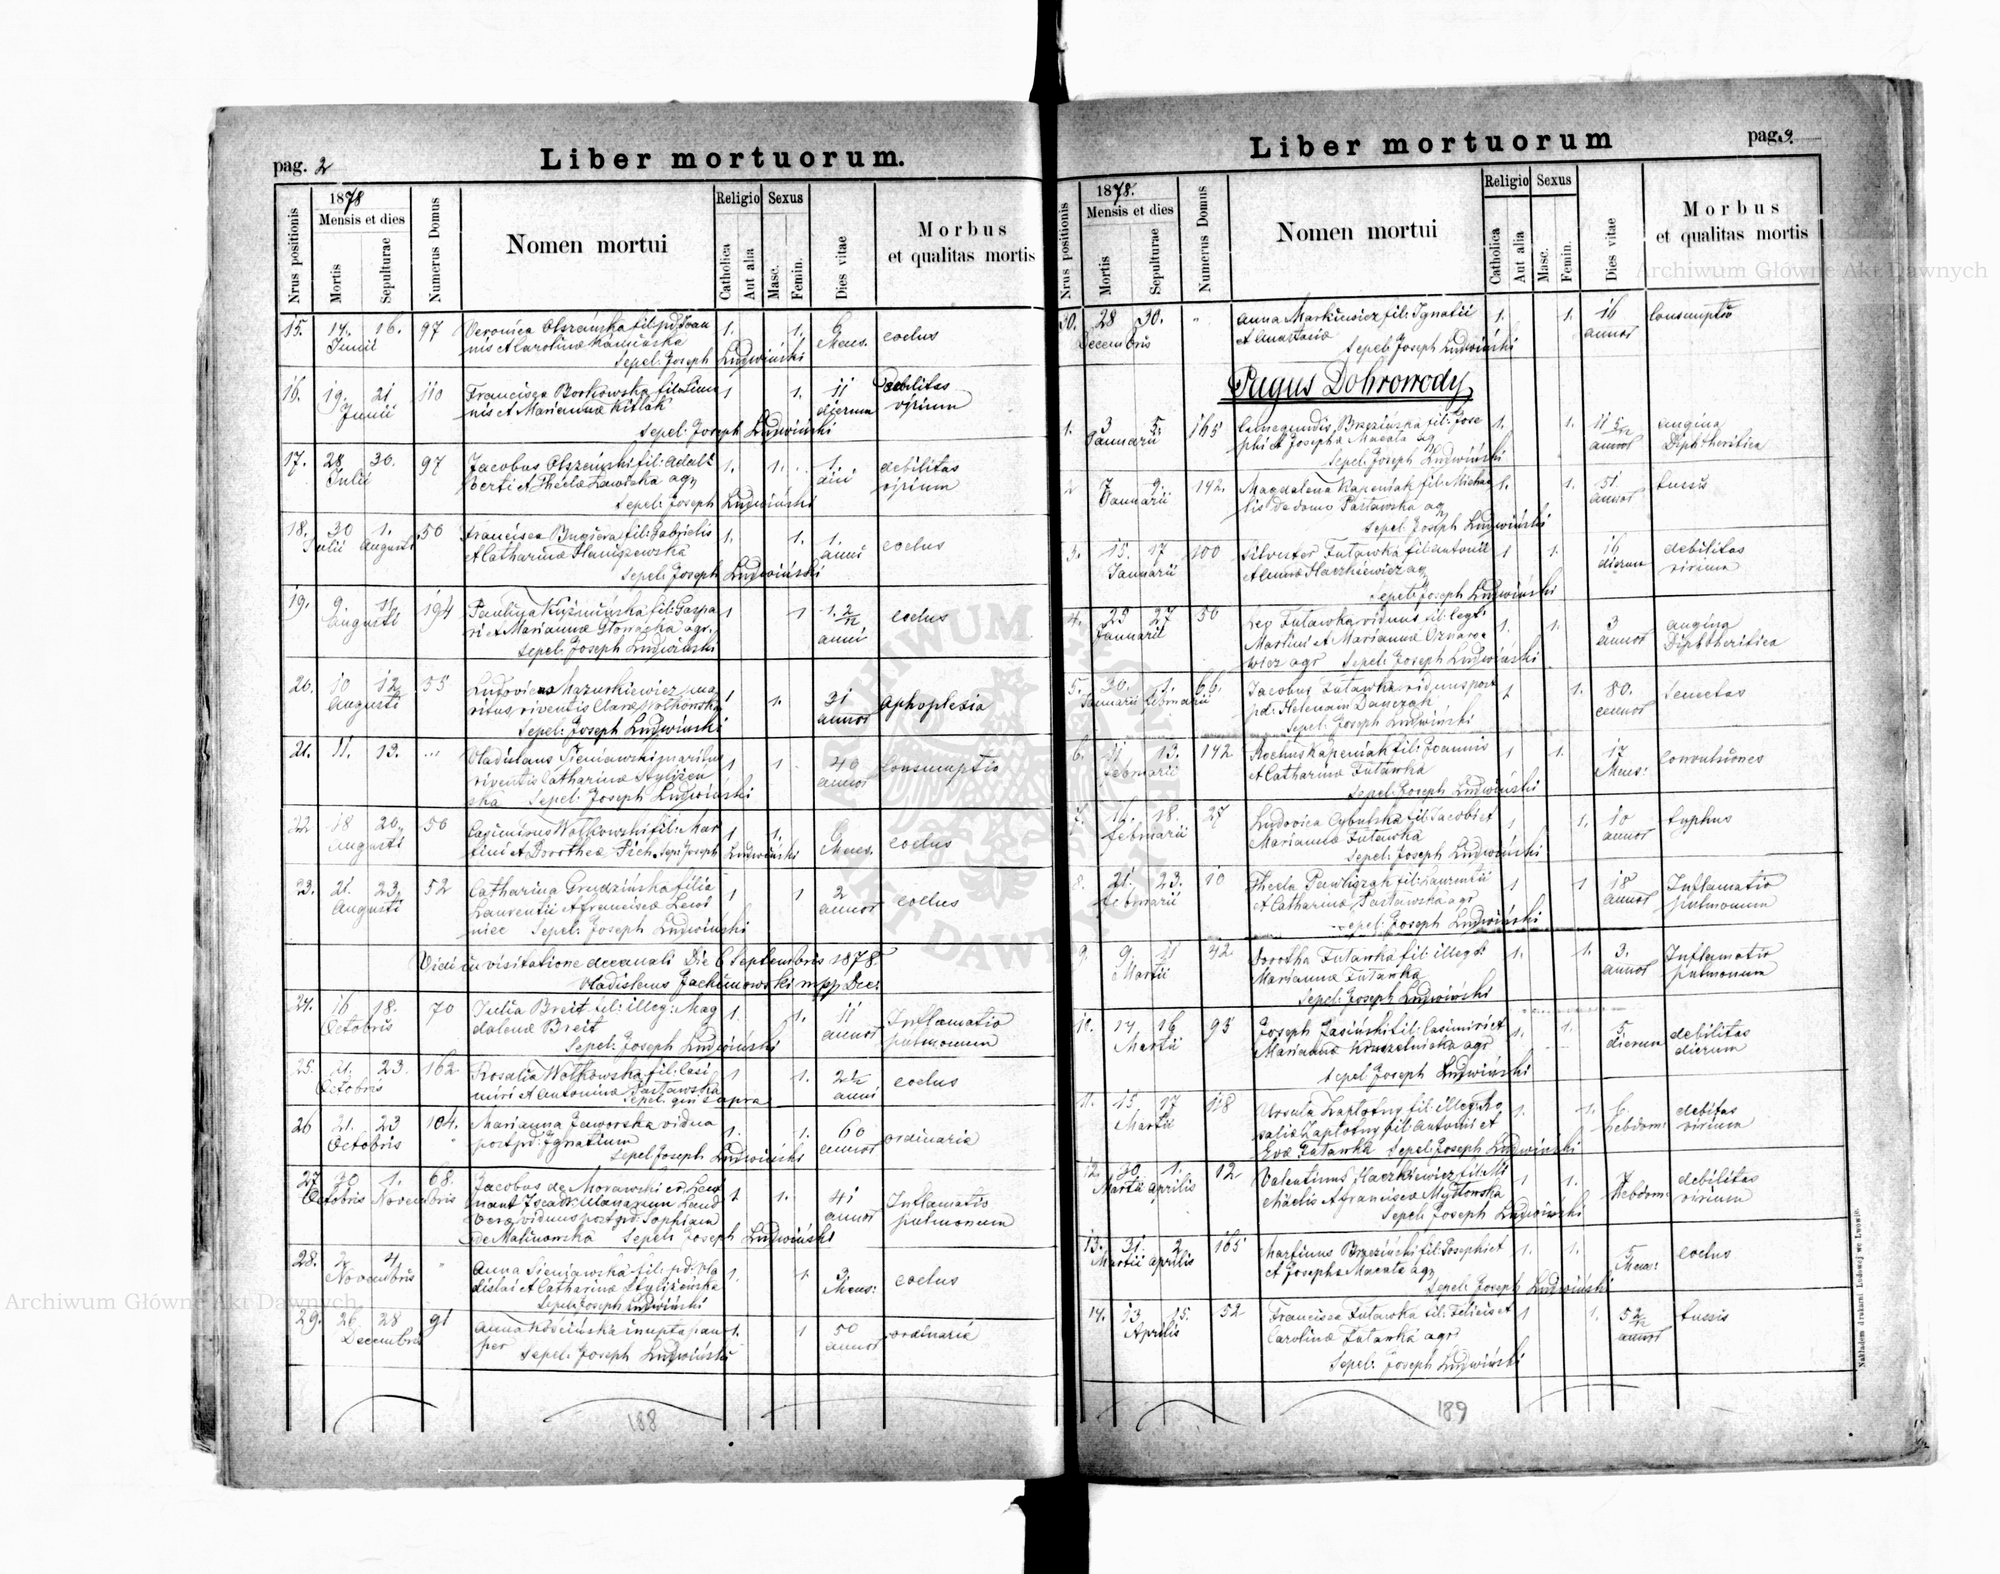 pag. 2
Liber mortuorum.
Nrus positionis
1878
Mensis et dies
Mortis
Sepulturae
Numerus Domus
Nomen mortui
Religio
Catholica
Aut alia
Sexus
Masc.
Femin.
Dies vitae
Morbus
et qualitas mortis
15. 14. 16. 97 Veronica Olszańska fil: pd: Joan 1. 1. 9 coctus
Junii nis et Carolina Kamińska Mens.
Sepel: Joseph Ludwiński
16. 19. 21. 110 Francisca Borkowska fil: 1 1. 11 debilitas
Junii nis et Marianna Kitlak dierum virium
Sepel: Joseph Ludwiński
17. 28 30. 97 Jacobus Olszański fil: Adal 1. 1. 1. debilitas
Julii berti et Thecla agr virium
Sepel: Joseph Ludwiński
18. 30 1. 50 Francisca fil: Gabrielis 1. 1. 1. coctus
Julii Augusti et Catharina Haniszewska anni
Sepel: Joseph Ludwiński
19. 9 11 194 Paulina fil: Gaspa 1 1 1. 2/12 coctus
Augusti ri et Marianna Głowacka agr. anni
Sepel: Joseph Ludwiński
20. 10 12 55 Ludovicus Mazurkiewicz ma 1 1. 31 Aphoplexia
Augusti ritus viventis Clara annos
Sepel: Joseph Ludwiński
21. 11. 13. ... Vladislaus Sieniawski maritus 1 1 40 Consumptio
viventis Catharina annos
ska Sepel: Joseph Ludwiński
22 18 20. 50 Casimirus Wołkowski fil: Mar 1 1. 9 coctus
Augusti tini et Dorothea Sepe: Joseph Ludwiński Mens.
23. 21. 23. 52 Catharina Grudzińska filia 1 1 2 coctus
Augusti Laurentii et Francisca annos
niec Sepel: Joseph Ludwiński
Vidi in visitatione decanali Die 6 Septembris 1878.
Vladislaus Jachimowski mpp Dec:
24. 16 18. 70 Julia Breit fil: illeg: Mag 1. 1. 11 Inflamatio
Octobris dalena Breit annos pulmonum
Sepel: Joseph Ludwiński
25. 21. 23. 162 Rosalia Wołkowska fil: Casi 1 1. 2 1/2 coctus
Octobris miri et Antonina Pastawska anni
Sepel: qui supra
26 21. 23 104. Marianna Jaworska vidua 1. 1. 60 ordinaria
Octobris post pd: Ignatium annos
Sepel Joseph Ludwiński
27 30 1. 68. Jacobus de Morawski 1 1. 41 Inflamatio
Octobris Novembris annos pulmonum
viduus post pd: Sophiam
de Malinowska Sepel: Joseph Ludwiński
28. 2 4. " Anna Sieniawska fil: pd: Vla 1. 1. 3 coctus
Novembris dislai et Catharina Mens:
Sepel: Joseph Ludwiński
29. 26 28 91 Anna inupta pau 1. 1 50 ordinaria
Decembris per annos
Sepel: Joseph Ludwiński
188
Liber mortuorum
pag. 3.
Nrus positionis
1878.
Mensis et dies
Mortis
Sepulturae
Numerus Domus
Nomen mortui
Religio
Catholica
Aut alia
Sexus
Masc.
Femin.
Dies vitae
Morbus
et qualitas mortis
30. 28 30. " Anna Markiewicz fil: Ignatii 1. 1. 16 Consumptio
Decembris et Anastasia annos
Sepel: Joseph Ludwiński
Pagus Dobrowody
1. 3 5. 165 Cunegundis Brzezińska fil: Jose 1. 1. 11 5/12 angina
Januarii phi et Josepha Macała agr annos Diphtheritica
Sepel: Joseph Ludwiński
2 7 9. 142. Magdalena Kapeniak fil: Michae 1. 1. 51. tussis
Januarii lis de domo Pastawska agr annos
Sepel: Joseph Ludwiński
3. 15. 17 100 Silvester Futawka fil: Antonii 1 1. 16 debilitas
Januarii et Anna Haczkiewicz agr dierum virium
Sepel: Joseph Ludwiński
4. 25 27 50 Futawka viduus fil: legt: 1. 1. 3 angina
Januarii Martini et Marianna annos Diphtheritica
wicz agr Sepel: Joseph Ludwiński
5. 30. 1. 66. Jacobus Futawka viduus post 1 1. 80. Senectus
Januarii Februarii pd: Helenam annos
Sepel: Joseph Ludwiński
6. 11 13. 142 Rochus Kapeniak fil: Joannis 1 1. 17 convulsiones
Februarii et Catharina Futawka Mens:
Sepel: Joseph Ludwiński
7. 16. 18. 27 Ludovica Cybulska fil: Jacobi et 1 1. 10 typhus
Februarii Marianna Futawka annos
Sepel: Joseph Ludwiński
8. 21. 23. 10 Thecla Pawliszak fil: Laurentii 1 1 18 Inflamatio
Februarii et Catharina Pastawska agr annos pulmonum
Sepel: Joseph Ludwiński
9. 9. 11 42 Dorotha Futawka fil: illegt: 1. 1. 3. Inflamatio
Martii Marianna Futawka annos pulmonum
Sepel: Joseph Ludwiński
10. 14 16 95 Joseph Jasiński fil: Casimiri et 1. 1. 5. debilitas
Martii Marianna agr dierum dierum
Sepel Joseph Ludwiński
11. 15 17 118 Ursula Zapłotny fil: illeg: Ro 1. 1. 6. debilitas
Martii salia Zapłotny fil: Antonii et hebdom: virium
Eva Futawka Sepel: Joseph Ludwiński
12. 30 1. 12 Valentinus Haczkiewicz fil: Mi 1 1. 7 debilitas
Martii Aprilis chaelis et Francisca Mydłowska hebdom: virium
Sepel: Joseph Ludwiński
13. 31. 2 165 Martinus Brzeziński fil: Josephi et 1. 1. 5 coctus
Martii Aprilis et Josepha Macała agr Mens:
Sepel: Joseph Ludwiński
14. 13. 15. 52 Francisca Futawka fil: Felicis et 1 1. 5 2/12 tussis
Aprilis Carolina Futawka agr annos
Sepel: Joseph Ludwiński
Nakładem drukarni Ludowej we Lwowie.
189
Archiwum Główne Akt Dawnych
Archiwum Główne Akt Dawnych
ARCHIWUM GŁÓWNE AKT DAWNYCH